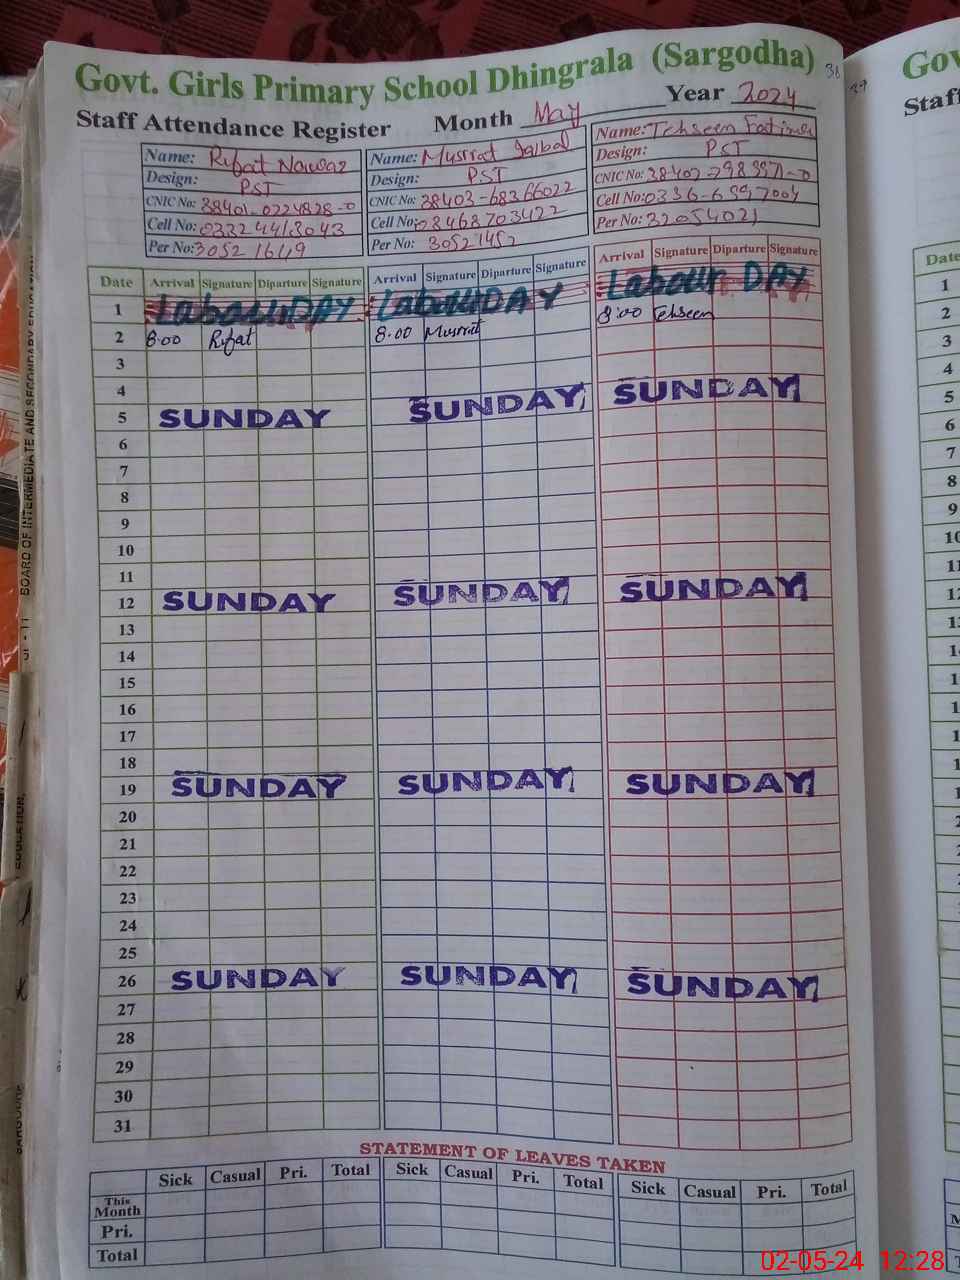 Govt. Girls Primary School Dhingrala (Sargodha)
Staff Attendance Register Month May Year 2024
Name: Rifat Nawaz
Design: PST
CNIC No:
Cell No:
Per No:
Name: Musrrat Iqbal
Design: PST
CNIC No: 38403-68366022
Cell No: 03468703422
Per No:
Name: Tehseen Fatima
Design: PST
CNIC No:
Cell No:
Per No: 32054021
Date Arrival Signature Diparture Signature Arrival Signature Diparture Signature Arrival Signature Diparture Signature
1 Labour DAY Labour DAY Labour DAY
2 8:00 Rifat 8:00 Musrrat 8:00 Tehseen
3
4
5 SUNDAY SUNDAY SUNDAY
6
7
8
9
10
11
12 SUNDAY SUNDAY SUNDAY
13
14
15
16
17
18
19 SUNDAY SUNDAY SUNDAY
20
21
22
23
24
25
26 SUNDAY SUNDAY SUNDAY
27
28
29
30
31
STATEMENT OF LEAVES TAKEN
Sick Casual Pri. Total Sick Casual Pri. Total Sick Casual Pri. Total
This Month
Pri.
Total
BOARD OF INTERMEDIATE AND SECONDARY EDUCATION
EDUCATION,
Date
1
2
3
4
5
6
7
8
9
10
02-05-24 12:28